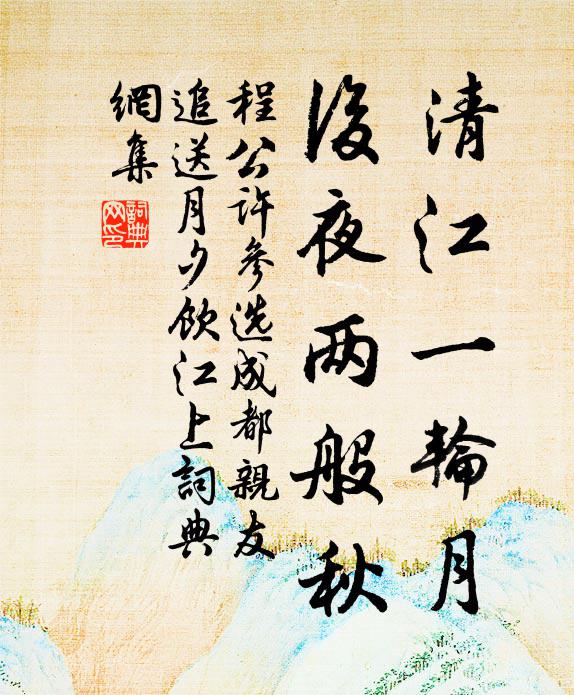 清江一輪月
後夜两般秋
程公许參选成都親友
追送月夕飲江上詞典
網集
詞典
网印